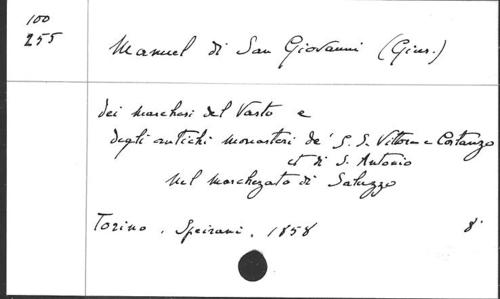 100
255
Manuel di San Giovanni (Gius.)
dei marchesi del Vasto e
degli antichi monasteri de' S. S. Vittore e Costanzo
et di S. Antonio
nel marchezato di Saluzzo
Torino. Speirani. 1858 8°